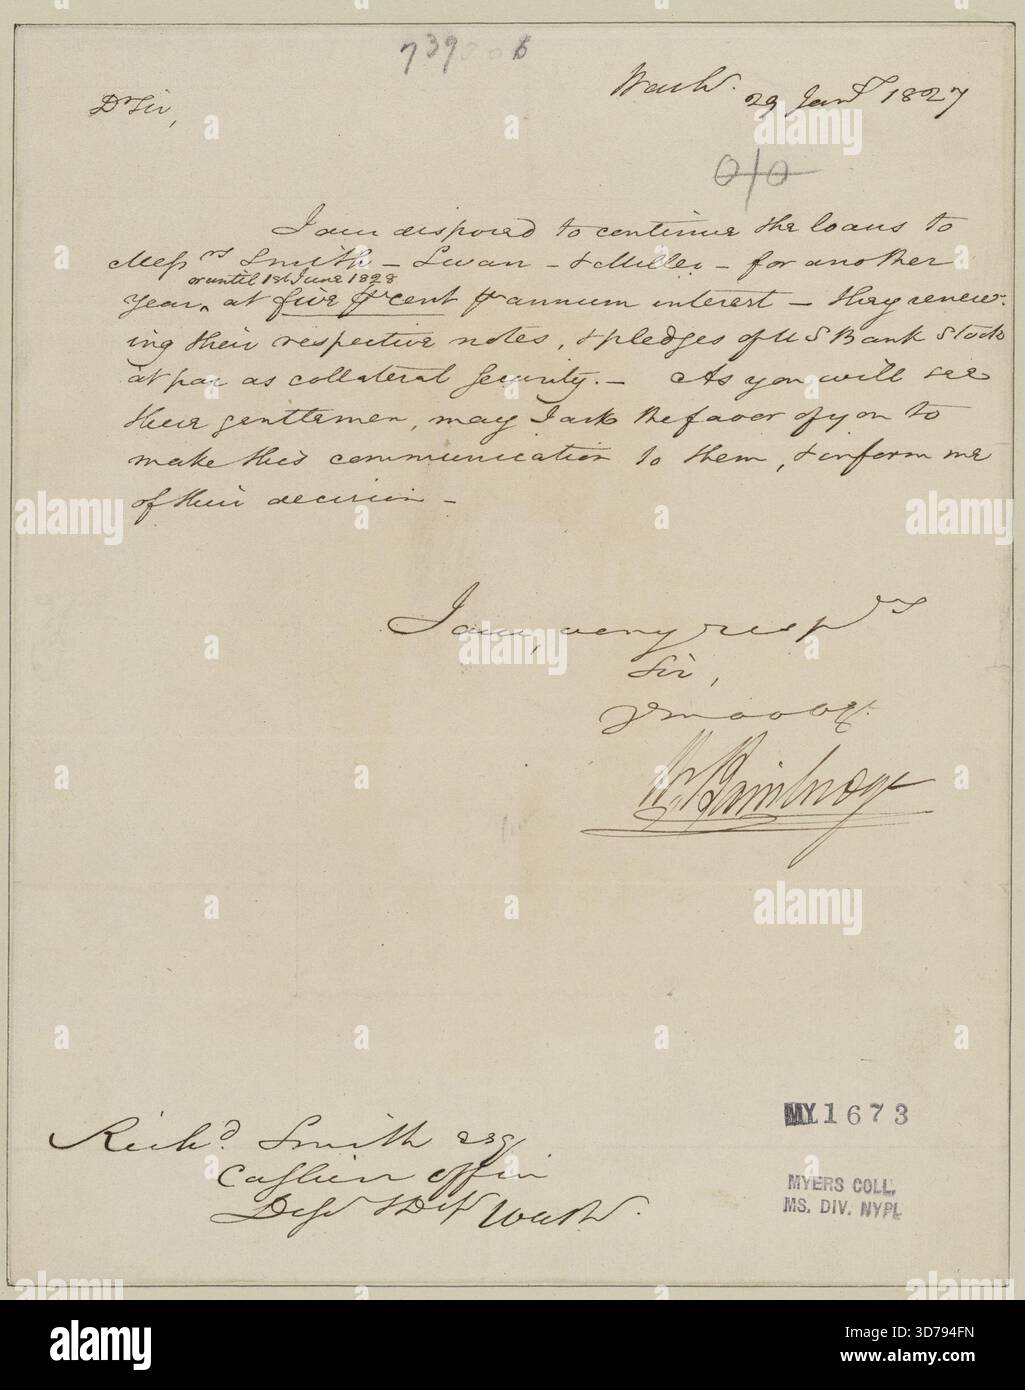 7390 6
Washn. 29 Jany 1827
Dr Sir,
I am disposed to continue the loans to
Messrs Smith - Swan - & Miller - for another
or until 1st June 1828
year, at five pr cent pr annum interest - they renew-
ing their respective notes, & pledges of U S Bank Stock
at par as collateral security. - As you will see
these gentlemen, may I ask the favor of you to
make this communication to them, & inform me
of their decision -
I am, very resp
Sir,
Wm Bainbridge
Richd. Smith esq
Cashier Offi
Washn.
MY 1673
MYERS COLL.
MS. DIV. NYPL
alamy
Image ID: 3D794FN
www.alamy.com